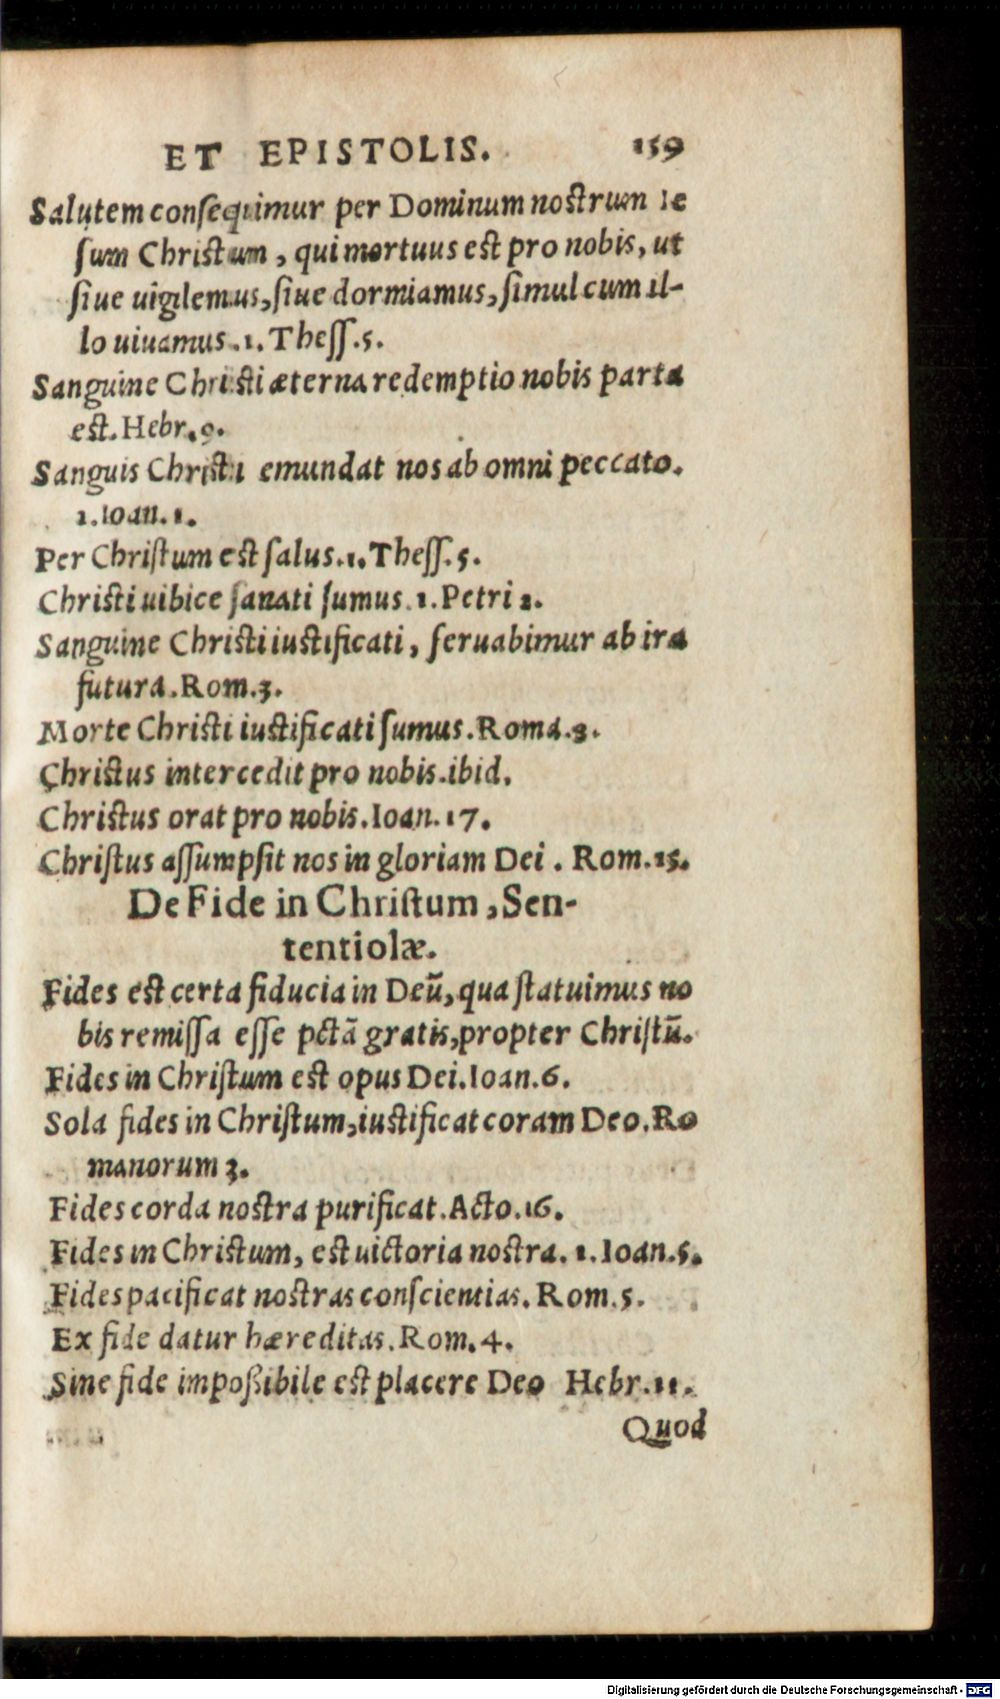 ET EPISTOLIS. 159
Salutem conſequimur per Dominum noſtrum Ie
ſum Chriſtum, qui mortuus eſt pro nobis, ut
ſiue uigilemus, ſiue dormiamus, ſimul cum il-
lo uiuamus. 1. Theſſ. 5.
Sanguine Chriſti æterna redemptio nobis parta
eſt. Hebr. 9.
Sanguis Chriſti emundat nos ab omni peccato.
1. Ioan. 1.
Per Chriſtum eſt ſalus. 1. Theſſ. 5.
Chriſti uibice ſanati ſumus. 1. Petri 2.
Sanguine Chriſti iuſtificati, ſeruabimur ab ira
futura. Rom. 3.
Morte Chriſti iuſtificati ſumus. Roma. 3.
Chriſtus intercedit pro nobis. ibid.
Chriſtus orat pro nobis. Ioan. 17.
Chriſtus aſſumpſit nos in gloriam Dei. Rom. 15.
De Fide in Chriſtum, Sen-
tentiolæ.
Fides eſt certa fiducia in Deū, qua ſtatuimus no
bis remiſſa eſſe pctā gratis, propter Chriſtū.
Fides in Chriſtum eſt opus Dei. Ioan. 6.
Sola fides in Chriſtum, iuſtificat coram Deo. Ro
manorum 3.
Fides corda noſtra purificat. Acto. 16.
Fides in Chriſtum, eſt uictoria noſtra. 1. Ioan. 5.
Fides pacificat noſtras conſcientias. Rom. 5.
Ex fide datur hæreditas. Rom. 4.
Sine fide impoßibile eſt placere Deo Hebr. 11.
Quod
Digitalisierung gefördert durch die Deutsche Forschungsgemeinschaft - DFG